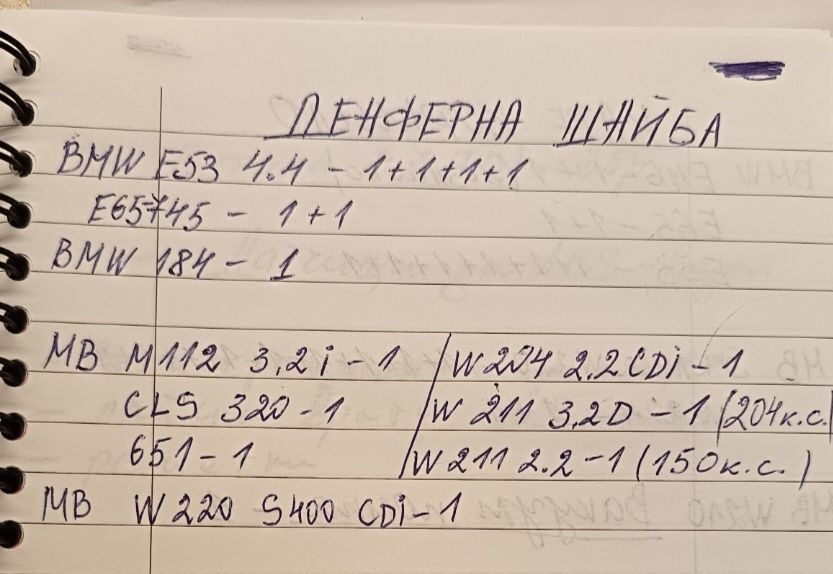 ДЕНФЕРНА ШАЙБА
BMW E53 4.4 - 1+1+1+1
E65 745 - 1+1
BMW 184 - 1
MB M112 3,2i - 1 / W204 2.2CDi - 1
CLS 320 - 1 / W 211 3.2D - 1 (204к.с.)
651 - 1 / W211 2.2 - 1 (150к.с.)
MB W220 S400 CDi - 1